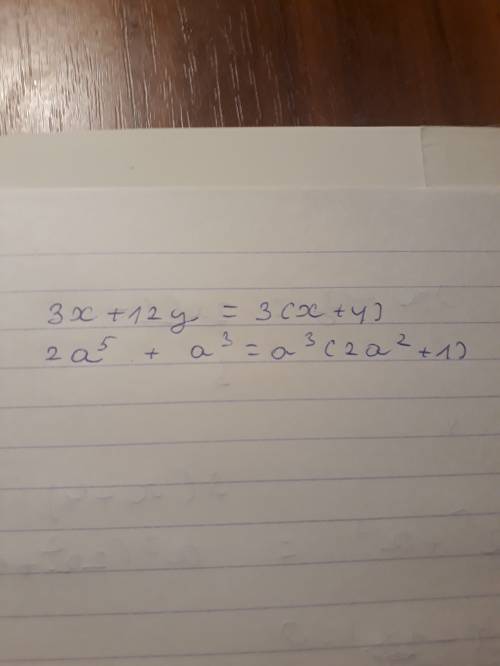 3x + 12y = 3(x + y)
2a⁵ + a³ = a³(2a² + 1)